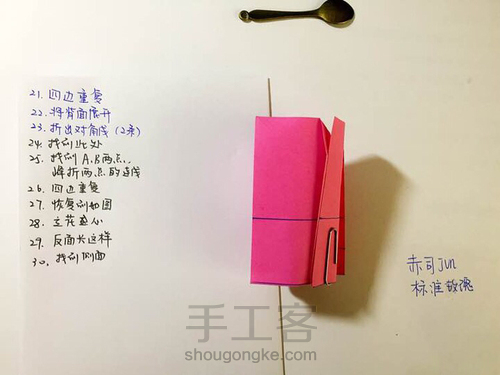 21. 四边重复
22. 将背面展开
23. 折出对角线(2条)
24. 找到此处
25. 找到A.B两点,
峰折两点的连线
26. 四边重复
27. 恢复到如图
28. 立花盘心
29. 反面长这样
30. 找到侧面
赤司jun
标准敬魂
手工客
shougongke.com